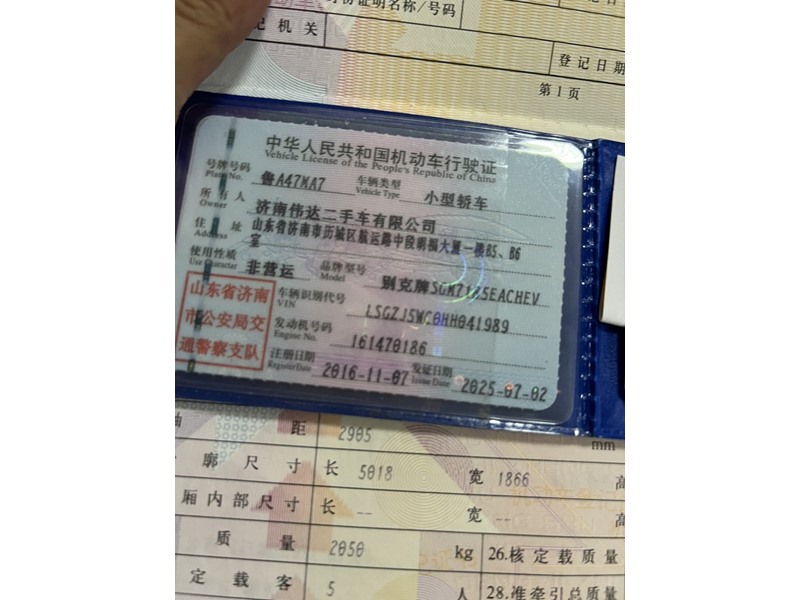 份证明名称/号码
记机关
登记日期
第1页
中华人民共和国机动车行驶证
Vehicle License of the People's Republic of China
号牌号码 鲁A47MA7 车辆类型 小型轿车
Plate No. Vehicle Type
所有人 济南伟达二手车有限公司
Owner
住址 山东省济南市历城区航运路中段明福大厦一楼B5、B6
Address 室
使用性质 非营运 品牌型号 别克牌SGM7155EACHEV
Use Character Model
山东省济南
市公安局交
通警察支队
车辆识别代号 LSGZJ5WC0HH041989
VIN
发动机号码 161470186
Engine No.
注册日期 2016-11-07 发证日期 2025-07-02
Register Date Issue Date
轴距 2905 mm
廓尺寸 长 5018 宽 1866 高
厢内部尺寸 长 -- 宽 -- 高
质量 2050 kg 26.核定载质量
定载客 5 人 28.准牵引总质量